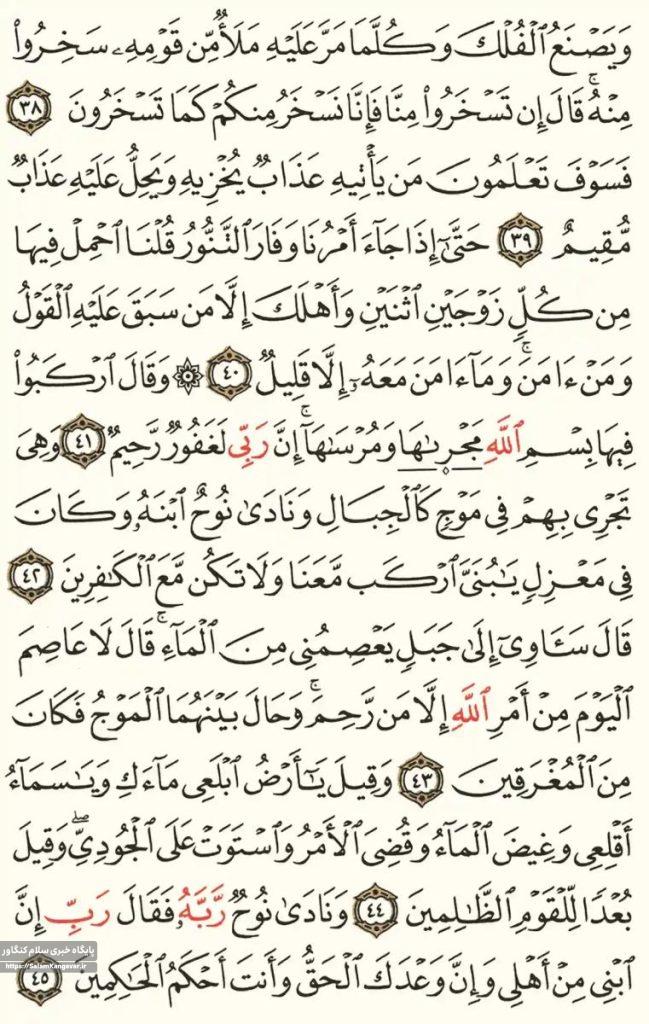 وَيَصۡنَعُ ٱلۡفُلۡكَ وَكُلَّمَا مَرَّ عَلَيۡهِ مَلَأٞ مِّن قَوۡمِهِۦ سَخِرُواْ
مِنۡهُۚ قَالَ إِن تَسۡخَرُواْ مِنَّا فَإِنَّا نَسۡخَرُ مِنكُمۡ كَمَا تَسۡخَرُونَ ٣٨
فَسَوۡفَ تَعۡلَمُونَ مَن يَأۡتِيهِ عَذَابٞ يُخۡزِيهِ وَيَحِلُّ عَلَيۡهِ عَذَابٞ
مُّقِيمٌ ٣٩ حَتَّىٰٓ إِذَا جَآءَ أَمۡرُنَا وَفَارَ ٱلتَّنُّورُ قُلۡنَا ٱحۡمِلۡ فِيهَا
مِن كُلّٖ زَوۡجَيۡنِ ٱثۡنَيۡنِ وَأَهۡلَكَ إِلَّا مَن سَبَقَ عَلَيۡهِ ٱلۡقَوۡلُ
وَمَنۡ ءَامَنَۚ وَمَآ ءَامَنَ مَعَهُۥٓ إِلَّا قَلِيلٞ ٤٠ ۞ وَقَالَ ٱرۡكَبُواْ
فِيهَا بِسۡمِ ٱللَّهِ مَجۡر۪ىٰهَا وَمُرۡسَىٰهَآۚ إِنَّ رَبِّي لَغَفُورٞ رَّحِيمٞ ٤١ وَهِيَ
تَجۡرِي بِهِمۡ فِي مَوۡجٖ كَٱلۡجِبَالِ وَنَادَىٰ نُوحٌ ٱبۡنَهُۥ وَكَانَ
فِي مَعۡزِلٖ يَٰبُنَيَّ ٱرۡكَب مَّعَنَا وَلَا تَكُن مَّعَ ٱلۡكَٰفِرِينَ ٤٢
قَالَ سَـَٔاوِيٓ إِلَىٰ جَبَلٖ يَعۡصِمُنِي مِنَ ٱلۡمَآءِۚ قَالَ لَا عَاصِمَ
ٱلۡيَوۡمَ مِنۡ أَمۡرِ ٱللَّهِ إِلَّا مَن رَّحِمَۚ وَحَالَ بَيۡنَهُمَا ٱلۡمَوۡجُ فَكَانَ
مِنَ ٱلۡمُغۡرَقِينَ ٤٣ وَقِيلَ يَٰٓأَرۡضُ ٱبۡلَعِي مَآءَكِ وَيَٰسَمَآءُ
أَقۡلِعِي وَغِيضَ ٱلۡمَآءُ وَقُضِيَ ٱلۡأَمۡرُ وَٱسۡتَوَتۡ عَلَى ٱلۡجُودِيِّۖ وَقِيلَ
بُعۡدٗا لِّلۡقَوۡمِ ٱلظَّٰلِمِينَ ٤٤ وَنَادَىٰ نُوحٞ رَّبَّهُۥ فَقَالَ رَبِّ إِنَّ
ٱبۡنِي مِنۡ أَهۡلِي وَإِنَّ وَعۡدَكَ ٱلۡحَقُّ وَأَنتَ أَحۡكَمُ ٱلۡحَٰكِمِينَ ٤٥
پایگاه خبری سلام کنگاور
https://SalamKangavar.ir